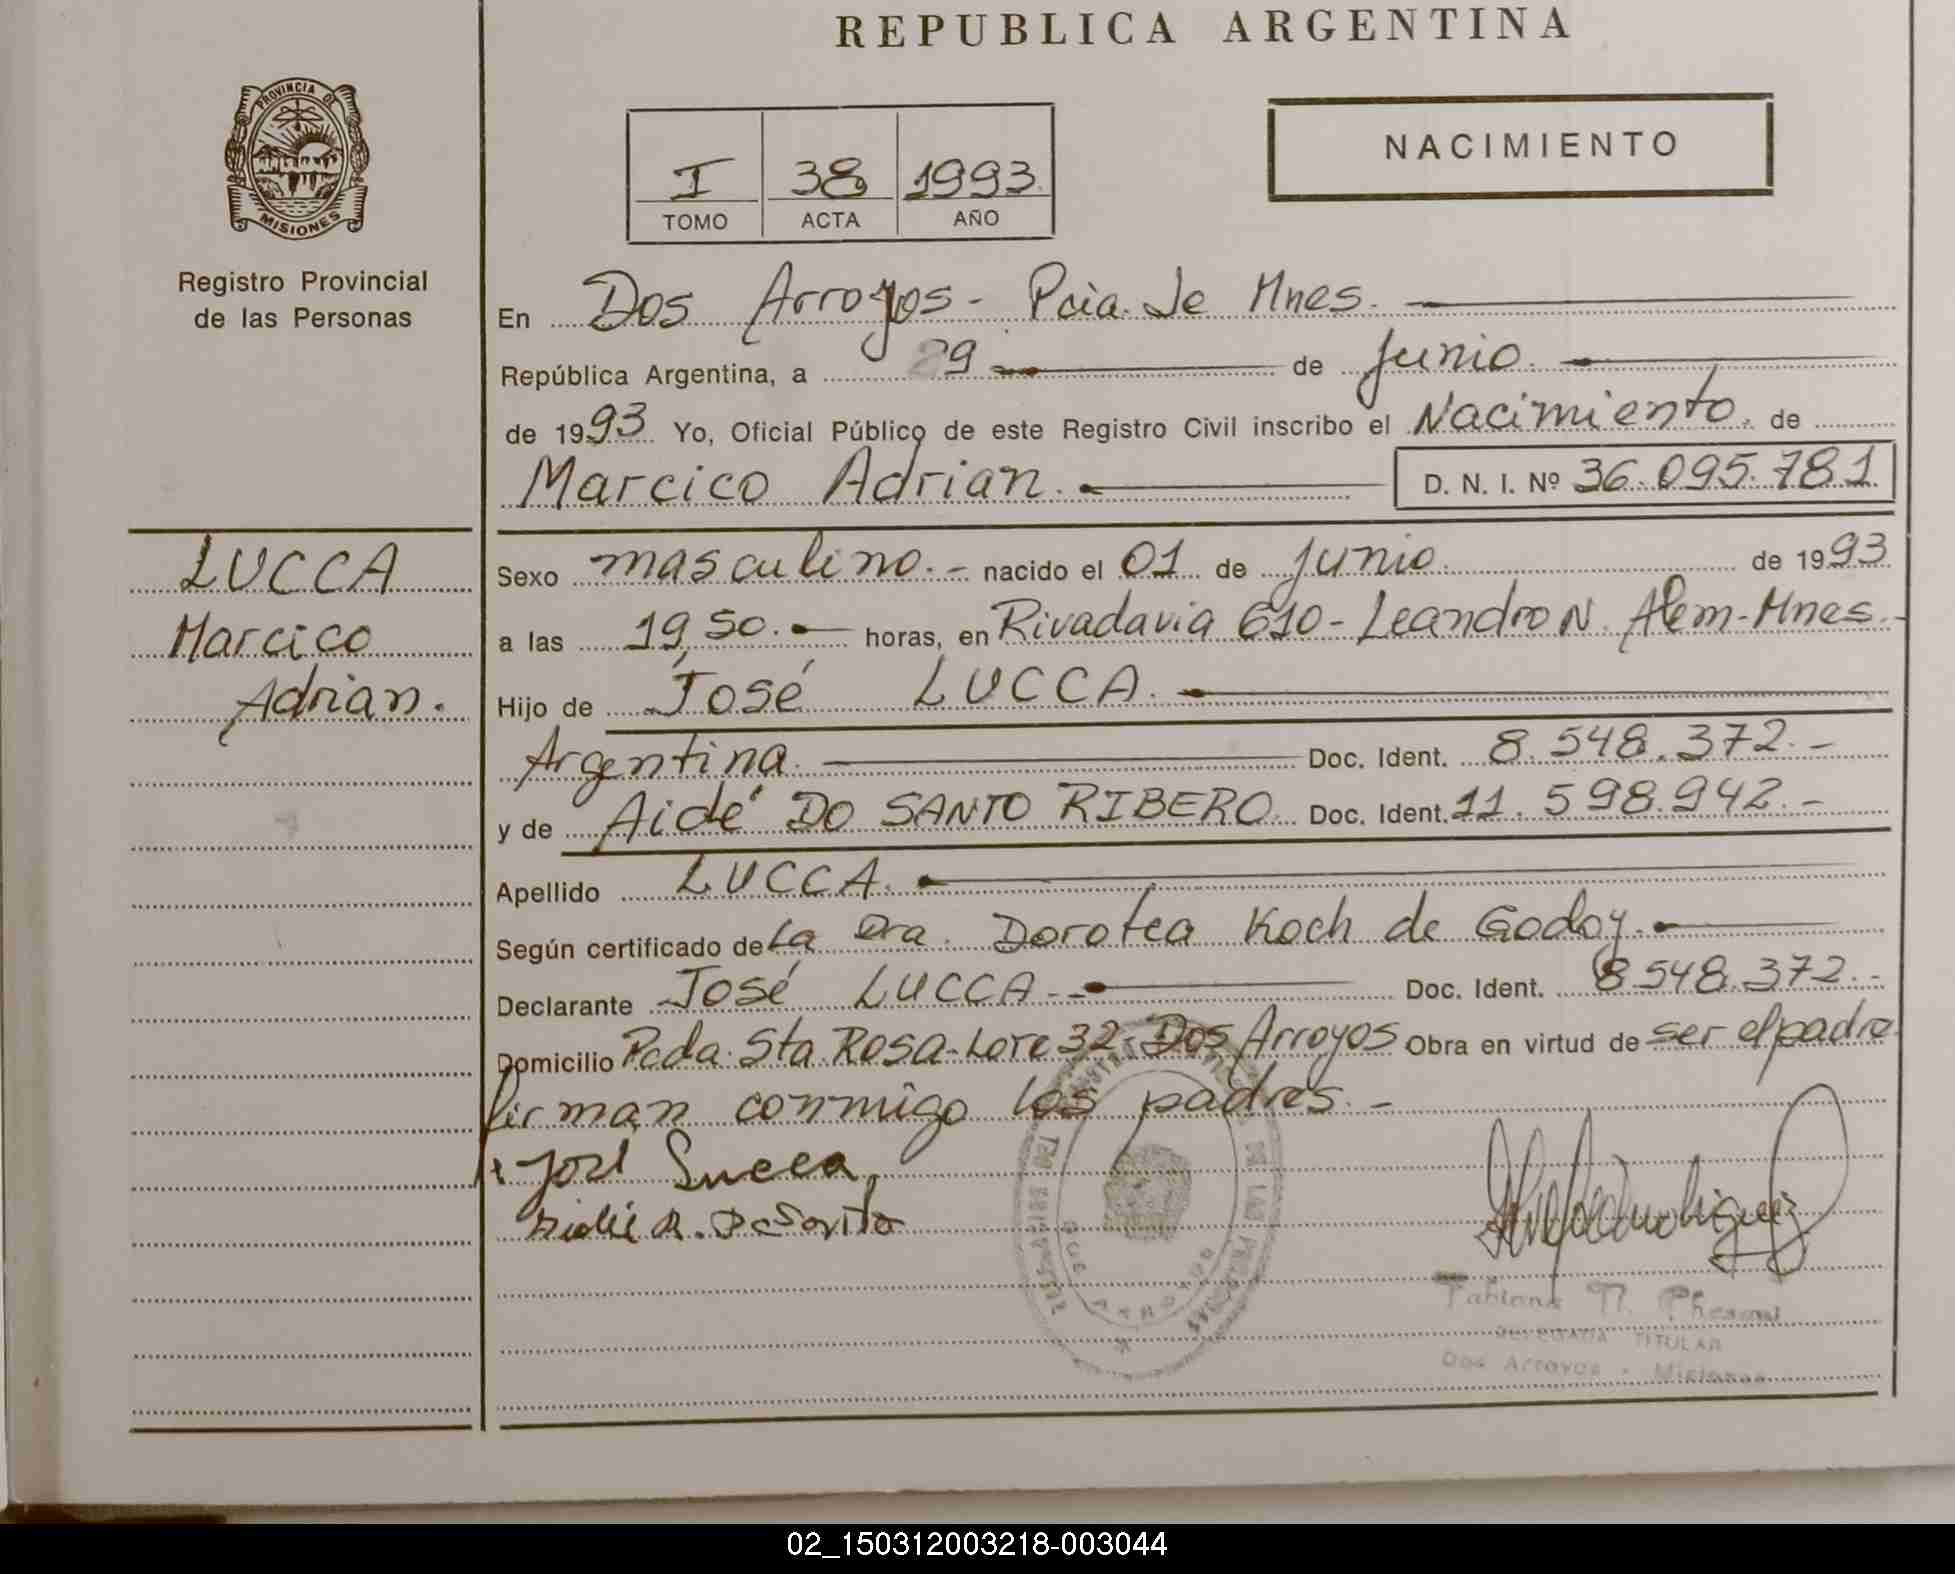 REPUBLICA ARGENTINA
PROVINCIA DE
MISIONES
Registro Provincial
de las Personas
I 38 1993
TOMO ACTA AÑO
NACIMIENTO
En Dos Arroyos - Pcia. de Mnes.
República Argentina, a 29 de junio.
de 1993 Yo, Oficial Público de este Registro Civil inscribo el Nacimiento, de
Marcico Adrian. D. N. I. Nº 36.095.781
LUCCA
Marcico
Adrian.
Sexo masculino.- nacido el 01 de junio. de 1993
a las 19,50. horas, en Rivadavia 610 - Leandro N. Alem - Mnes.-
Hijo de José LUCCA.
Argentina. Doc. Ident. 8.548.372.-
y de Aidé DO SANTO RIBERO. Doc. Ident. 11.598.942.-
Apellido LUCCA.
Según certificado de La Dra. Dorotea Koch de Godoy.
Declarante José LUCCA.- Doc. Ident. 8.548.372.-
Domicilio Pcda. Sta. Rosa - Lote 32 - Dos Arroyos Obra en virtud de ser el padre.
firman conmigo los padres.-
José Lucca
DOS ARROYOS
TITULAR
Dos Arroyos - Misiones
02_150312003218-003044